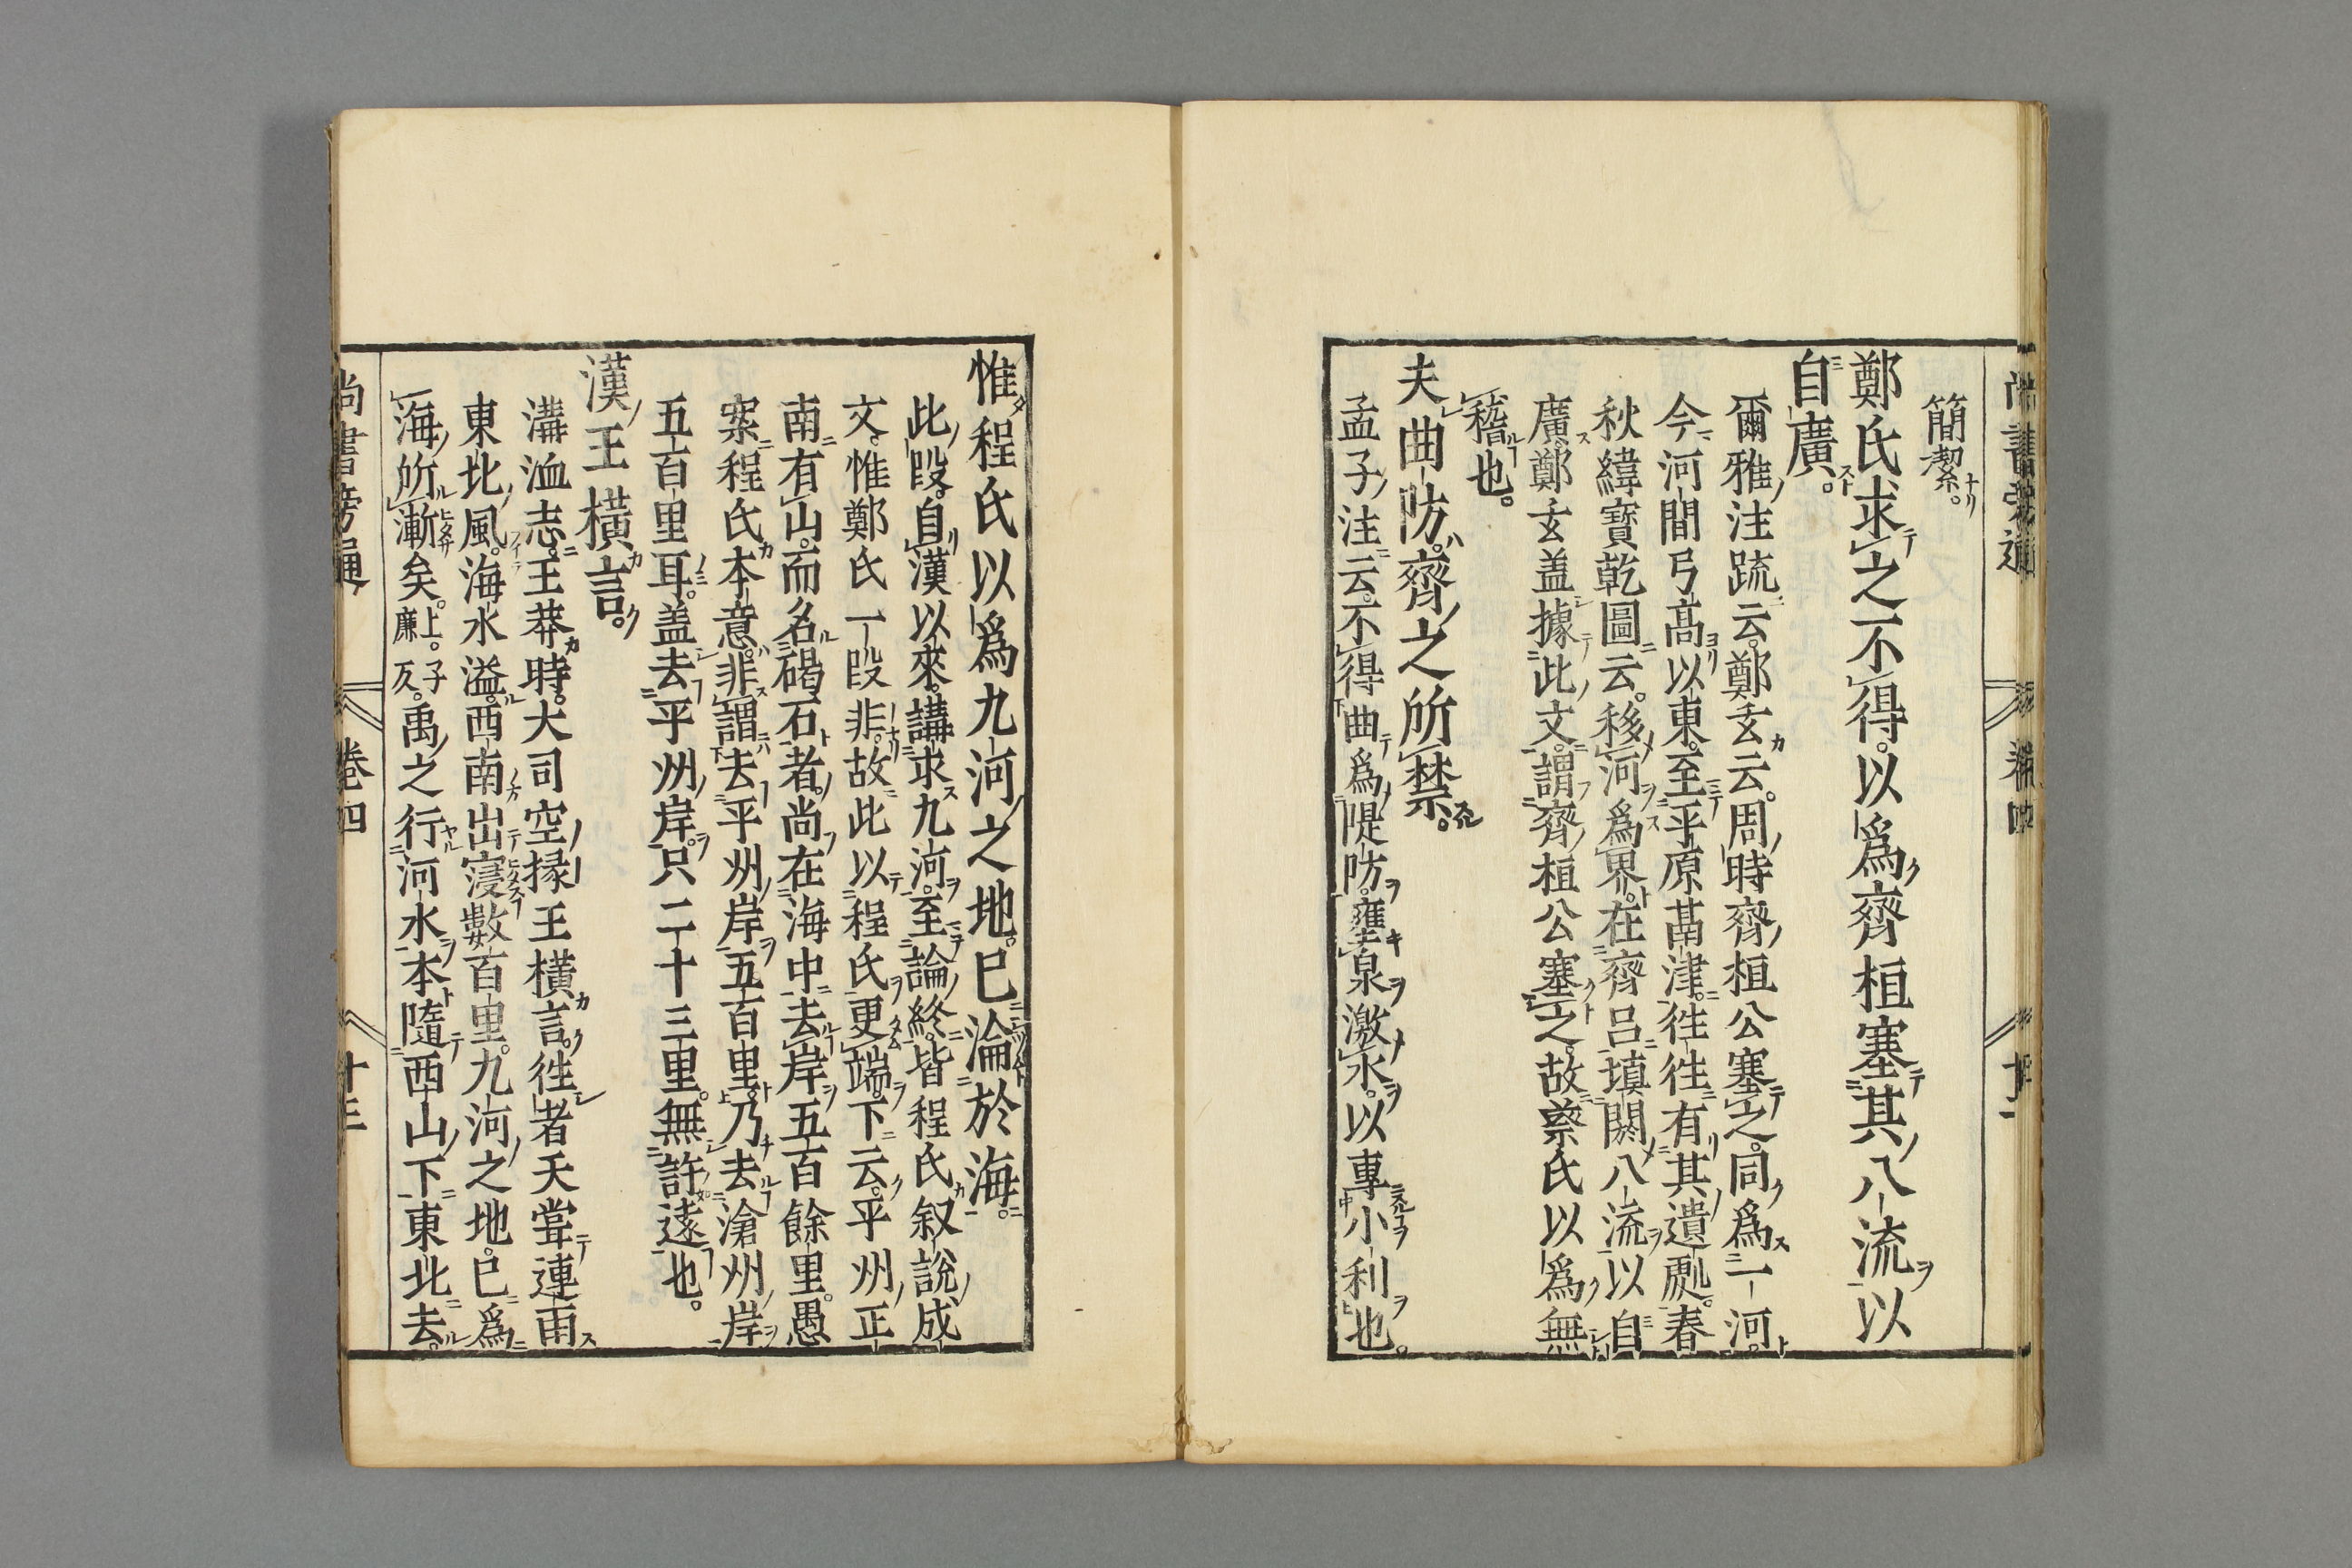 簡潔。
鄭氏求之不得。以爲齊桓塞其八流以
自廣。
爾雅注䟽云。鄭玄云。周時齊桓公塞之。同爲一河。
今河間弓高以東。至乎原鬲津。徃徃有其遺處。春
秋緯寶乾圖云。移河爲界。在齊呂填閼八流以自
廣。鄭玄盖據此文。謂齊桓公塞之。故蔡氏以爲無
稽也。
夫曲防。齊之所禁。
孟子注云。不得曲爲隄防。壅泉激水。以專小利也。
惟程氏以爲九河之地。已淪於海。
此段。自漢以來。講求九河。至論終。皆程氏叙說成
文。惟鄭氏一段非。故此以程氏更端。下云。平州正
南有山。而名碣石者。尚在海中。去岸五百餘里。愚
案程氏本意。非謂去平州岸五百里。乃去滄州岸
五百里耳。盖去平州岸。只二十三里。無許遠也。
漢王橫言。
溝洫志。王莽時。大司空掾王橫言。徃者天甞連雨
東北風。海水溢。西南出寖數百里。九河之地。已爲
海所漸矣。上。子廉反。禹之行河水。本隨西山下東北去。
尚書旁通
卷四
十三